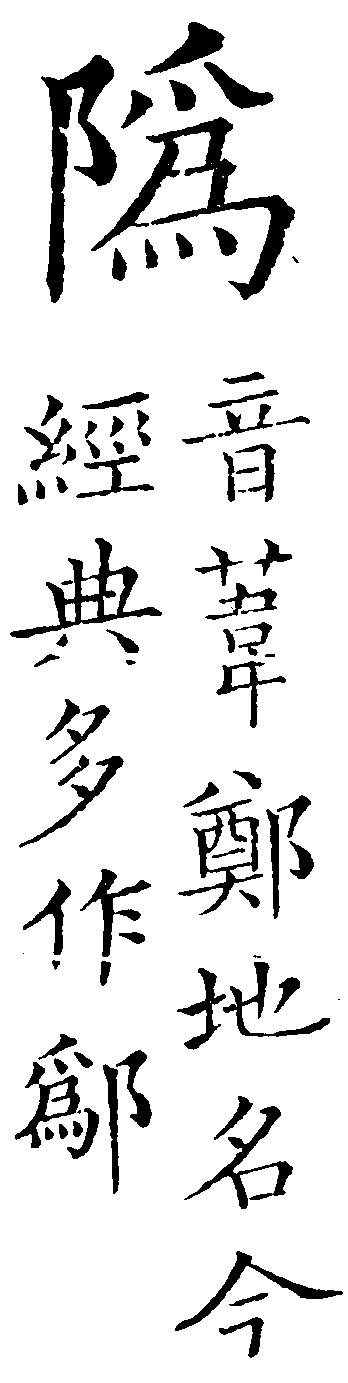 隝
音葦鄭地名今
經典多作鄬